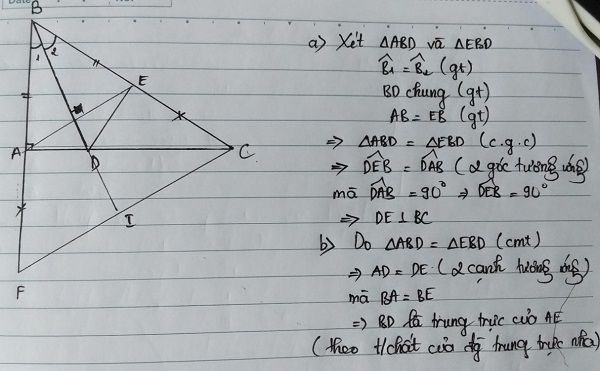 No:
B
1 2
E
A
D
C
I
F
a) Xét ΔABD và ΔEBD
B̂₁ = B̂₂ (gt)
BD chung (gt)
AB = EB (gt)
⇒ ΔABD = ΔEBD (c.g.c)
⇒ DÊB = DÂB (2 góc tương ứng)
mà DÂB = 90° ⇒ DÊB = 90°
⇒ DE ⊥ BC
b) Do ΔABD = ΔEBD (cmt)
⇒ AD = DE (2 cạnh tương ứng)
mà BA = BE
⇒ BD là trung trực của AE
(theo t/chất của đg trung trực nha)